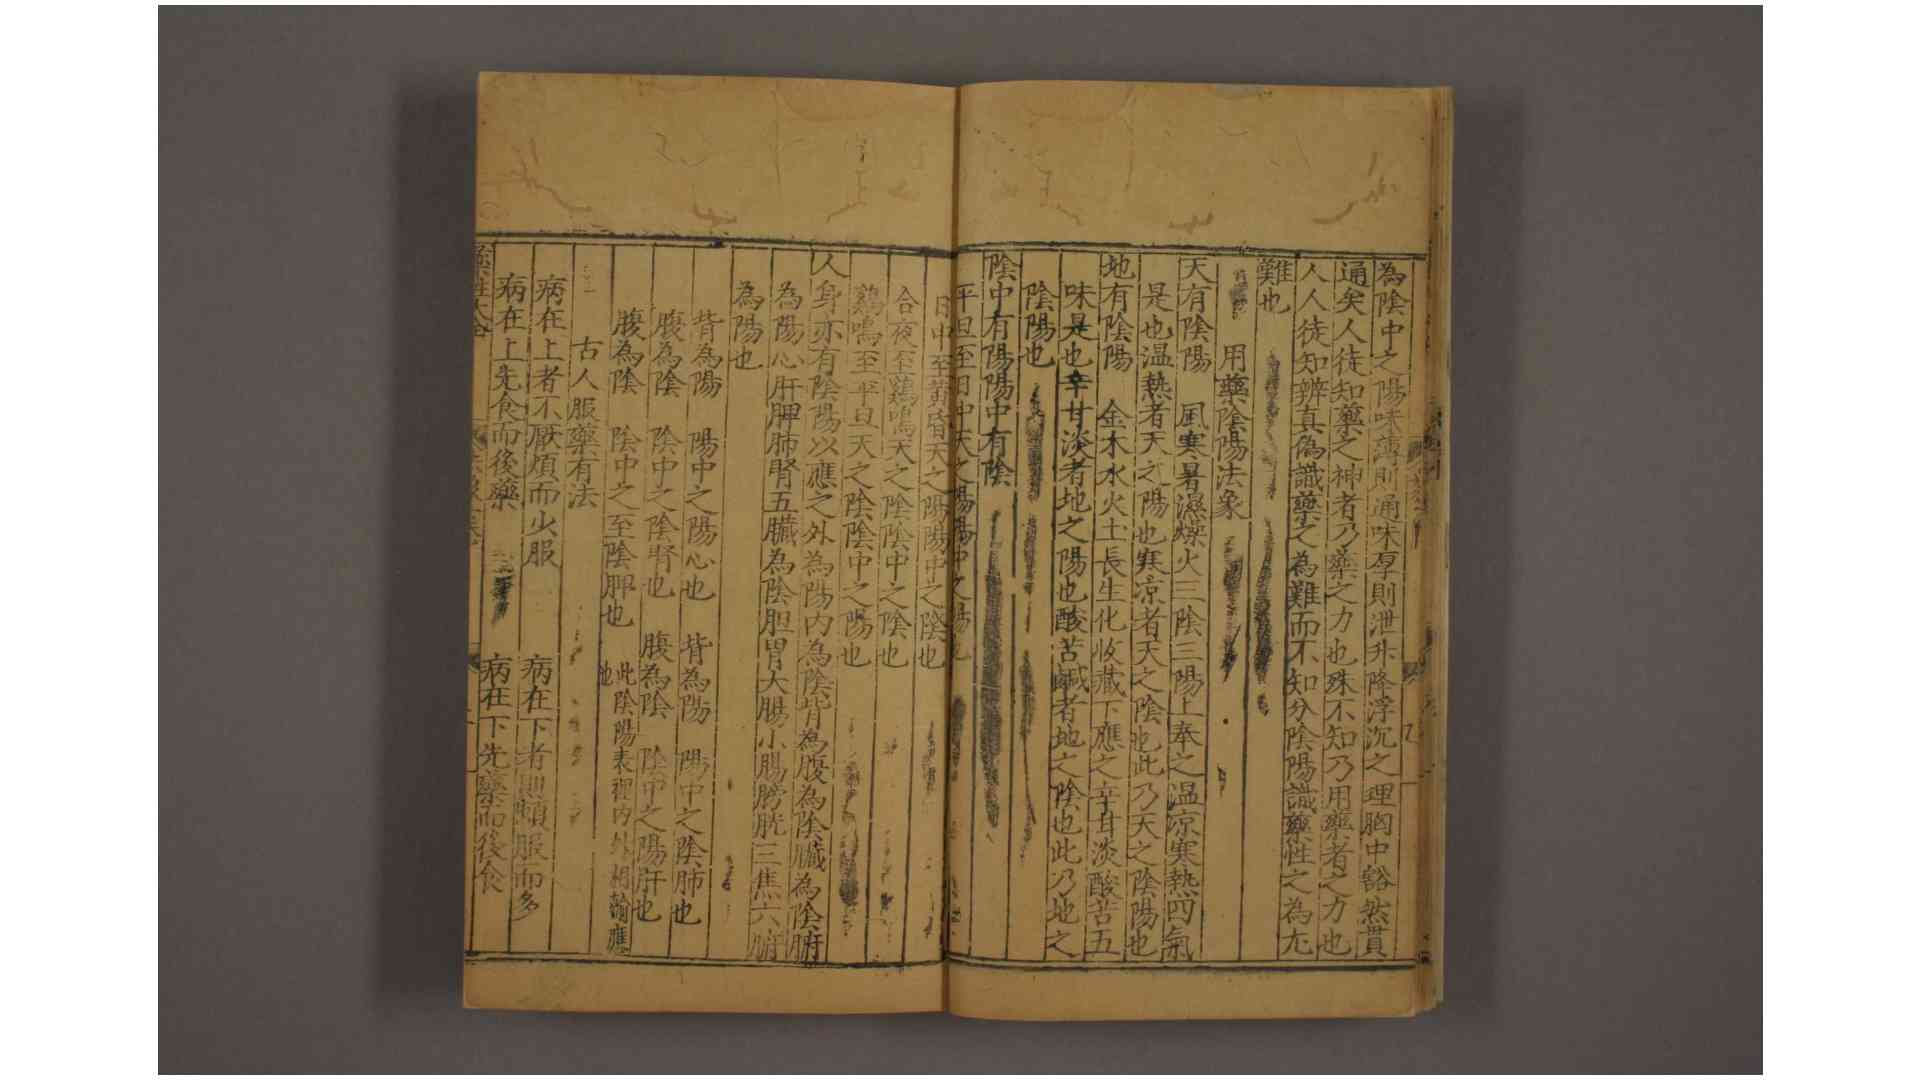 為陰中之陽味薄則通味厚則泄升降浮沉之理胸中豁然貫
通矣人徒知藥之神者乃藥之力也殊不知乃用藥者之力也
人人徒知辨真偽識藥之為難而不知分陰陽識藥性之為尤
難也
用藥陰陽法象
天有陰陽　風寒暑濕燥火三陰三陽上奉之温凉寒熱四氣
是也温熱者天之陽也寒凉者天之陰也此乃天之陰陽也
地有陰陽　金木水火土長生化收藏下應之辛甘淡酸苦五
味是也辛甘淡者地之陽也酸苦鹹者地之陰也此乃地之
陰陽也
陰中有陽陽中有陰
平旦至日中天之陽陽中之陽也
日中至黄昏天之陽陽中之陰也
合夜至鷄鳴天之陰陰中之陰也
鷄鳴至平旦天之陰陰中之陽也
人身亦有陰陽以應之外為陽内為陰背為腹為陰臟為陰腑
為陽心肝脾肺腎五臟為陰胆胃大腸小腸膀胱三焦六腑
為陽也
背為陽　陽中之陽心也　背為陽　陽中之陰肺也
腹為陰　陰中之陰腎也　腹為陰　陰中之陽肝也
腹為陰　陰中之至陰脾也　此陰陽表裡内外相輸應
也
古人服藥有法
病在上者不厭煩而少服　病在下者則頻服而多
病在上先食而後藥　病在下先藥而後食